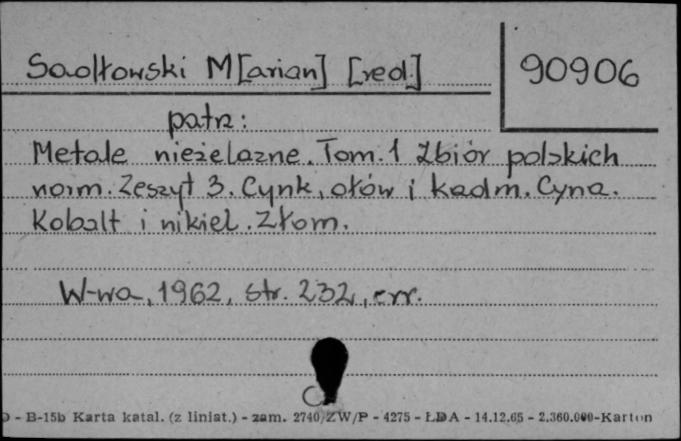 Sadłowski M[arian] [red.]
90906
patrz:
Metale nieżelazne. Tom. 1 Zbiór polskich
norm. Zeszyt 3. Cynk, ołów i kadm. Cyna.
Kobalt i nikiel. Złom.
W-wa, 1962, str. 232, err.
- B-15b Karta katal. (z liniat.) - zam. 2740/ZW/P - 4275 - ŁDA - 14.12.65 - 2.360.000-Karton